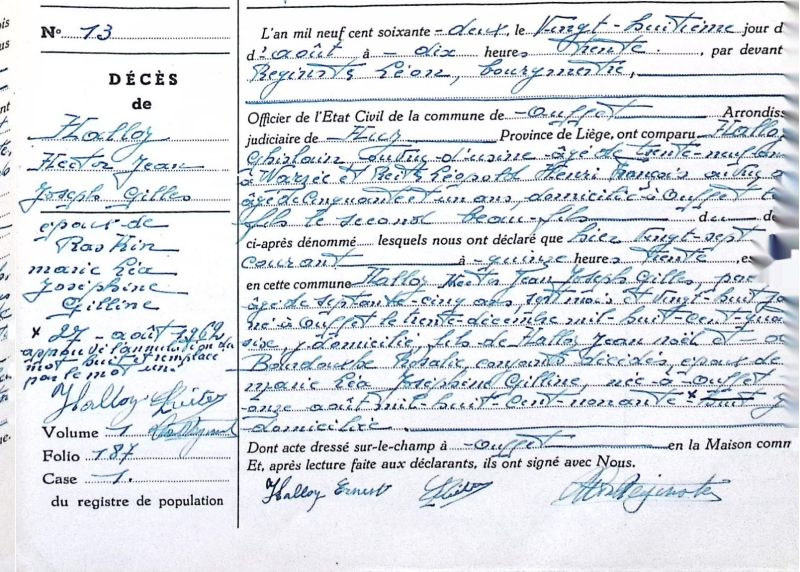 N° 13
DÉCÈS
de
Halloy
Hector Jean
Joseph Gilles
époux de
Raskin
Marie Léa
Joséphine
Gilline
x 27 - août 1962
approuvé l'annulation du
mot huit et remplacé
par le mot un
Halloy
Volume 1
Folio 187
Case 1.
du registre de population
L'an mil neuf cent soixante - deux, le Vingt-huitième jour d
d'août à - dix heures trente, par devant
Reginster Léon, bourgmestre,
Officier de l'Etat Civil de la commune de - Ouffet Arrondiss
judiciaire de - Huy Province de Liège, ont comparu Halloy
Ghislain ouvrier d'usine âgé de trente-neuf ans
à Warzée et Léopold Henri François ouvrier
âgé de cinquante et un ans domicilié à Ouffet
fils le second beau-fils du de
ci-après dénommé lesquels nous ont déclaré que hier vingt-sept
courant à - quinze heures trente, es
en cette commune Halloy Hector Jean Joseph Gilles,
âgé de septante-cinq ans sept mois et vingt-huit jo
né à Ouffet le trente décembre mil huit cent qua
six, y domicilié, fils de Halloy Jean Noël et - de
Rosalie, conjoints décédés, époux de
Marie Léa Joséphine Gilline, née à Ouffet
onze août mil huit cent nonante x huit y
domiciliée
Dont acte dressé sur-le-champ à - Ouffet en la Maison comm
Et, après lecture faite aux déclarants, ils ont signé avec Nous.
Halloy Ernest